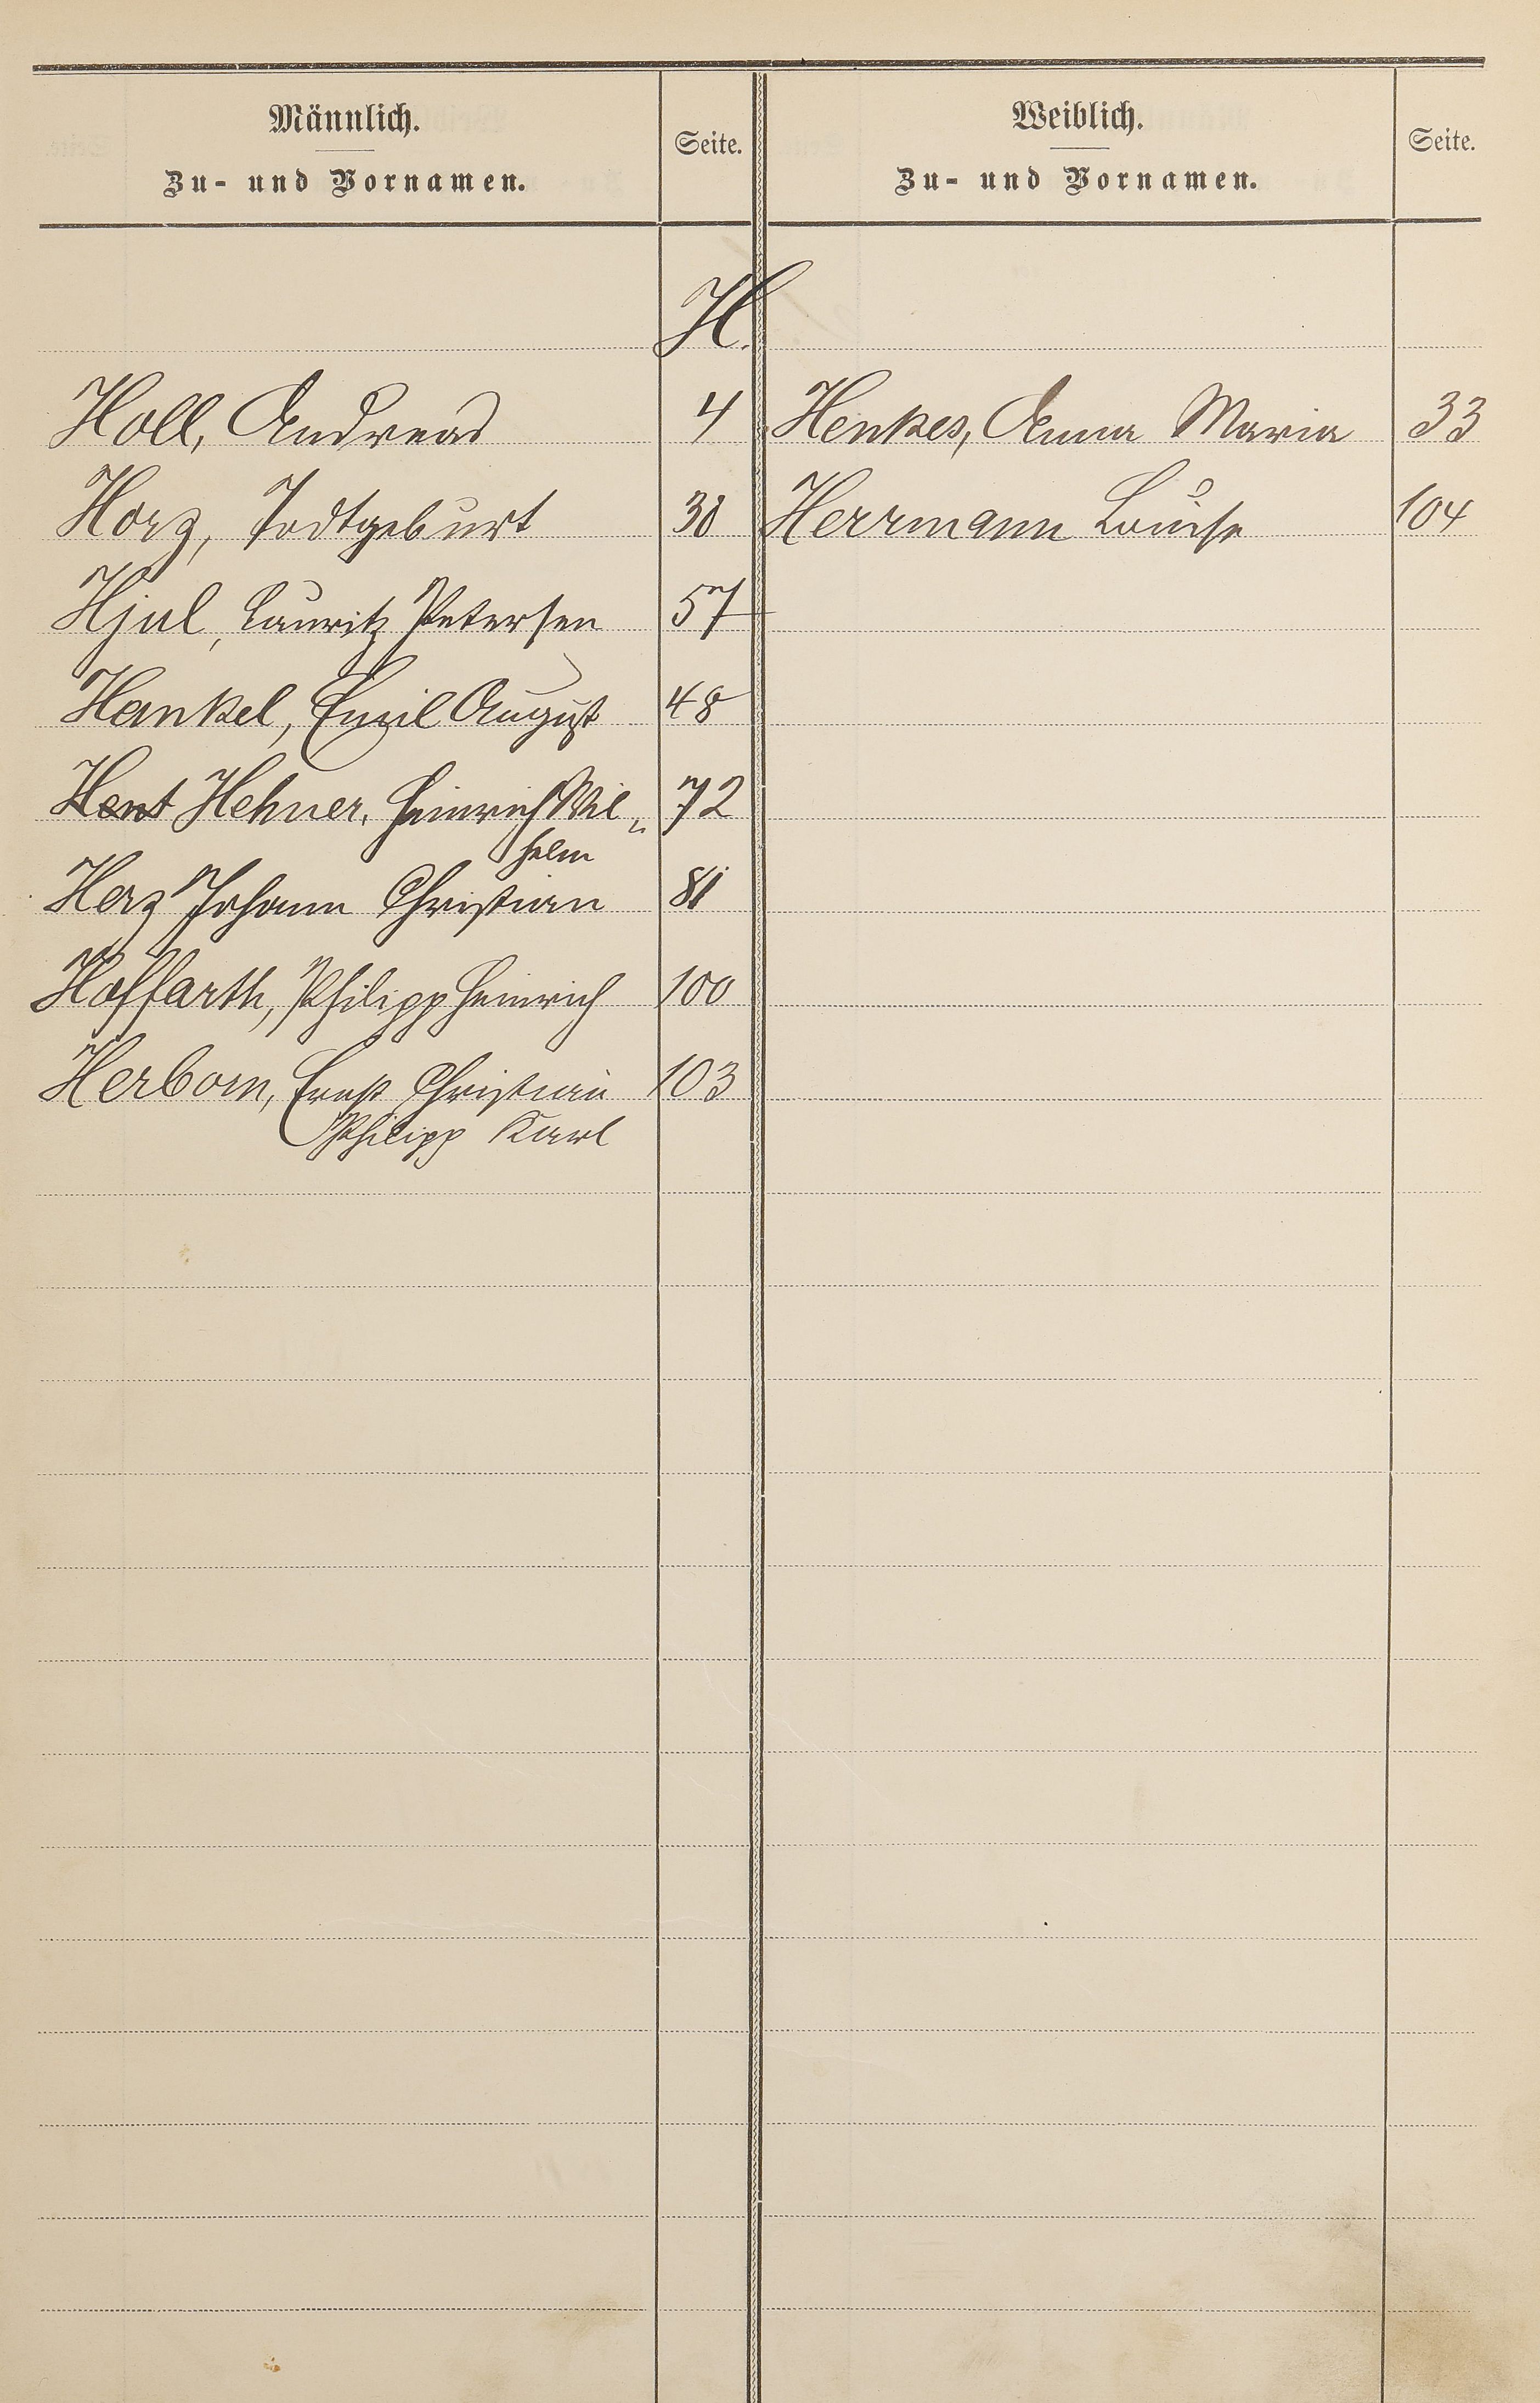 Männlich.
Zu- und Vornamen.
Seite.
Weiblich.
Zu- und Vornamen.
Seite.
H.
Holl, Andreas 4 Henkes, Anna Maria 33
Horz, Todtgeburt 38 Herrmann Louise 104
Hjul, Lauritz Petersen 57
Henkel, Emil August 48
Hent Hehner, Heinrich Wil-
helm 72
Herz Johann Christian 81
Hoffarth, Philipp Heinrich 100
Herborn, Ernst Christian 103
Philipp Karl